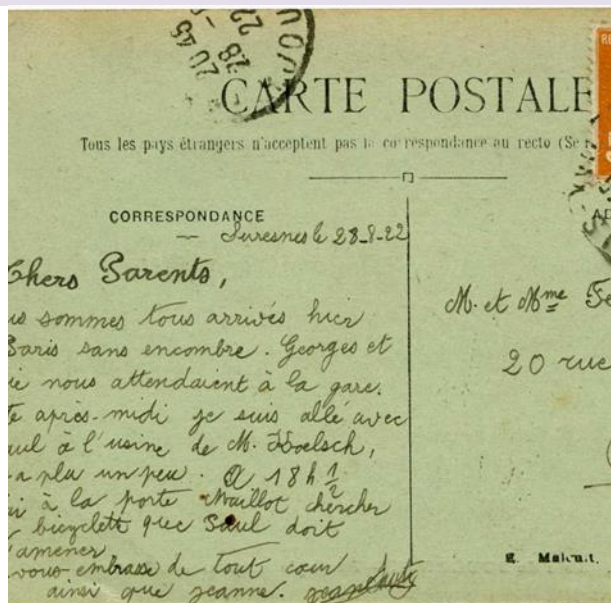 20 45
28 - 8
22
CARTE POSTALE
Tous les pays étrangers n'acceptent pas la correspondance au recto (Se
CORRESPONDANCE
Suresnes le 28-8-22
Chers Parents,
us sommes tous arrivés hier
Paris sans encombre. Georges et
ie nous attendaient à la gare.
te après-midi je suis allé avec
aul à l'usine de M. Koelsch,
a plu un peu. A 18 h 1/2
ai à la porte Maillot chercher
bicyclett que Paul doit
amener
vous embrasse de tout cœur
ainsi que Jeanne.
M. et Mme
20 rue
E. Malcuit.